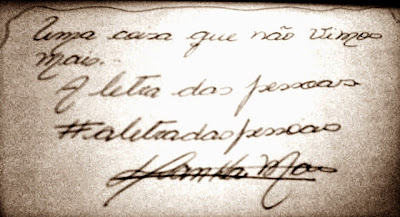 Uma coisa que não vimos
mais...
A letra das pessoas
#aletradaspessoas